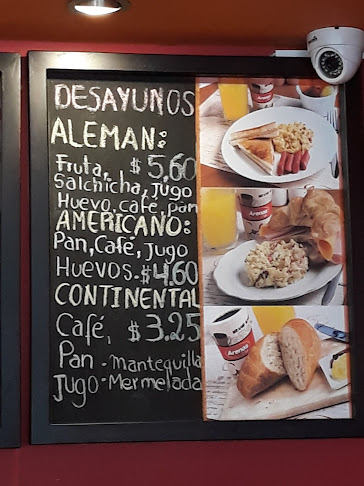 DESAYUNOS
ALEMAN:
Fruta, $5.60
Salchicha, Jugo
Huevo, café, pan
AMERICANO:
Pan, Café, Jugo
HUEVOS. $4.60
CONTINENTAL
Café, $3.25
Pan - Mantequilla
Jugo - Mermelada